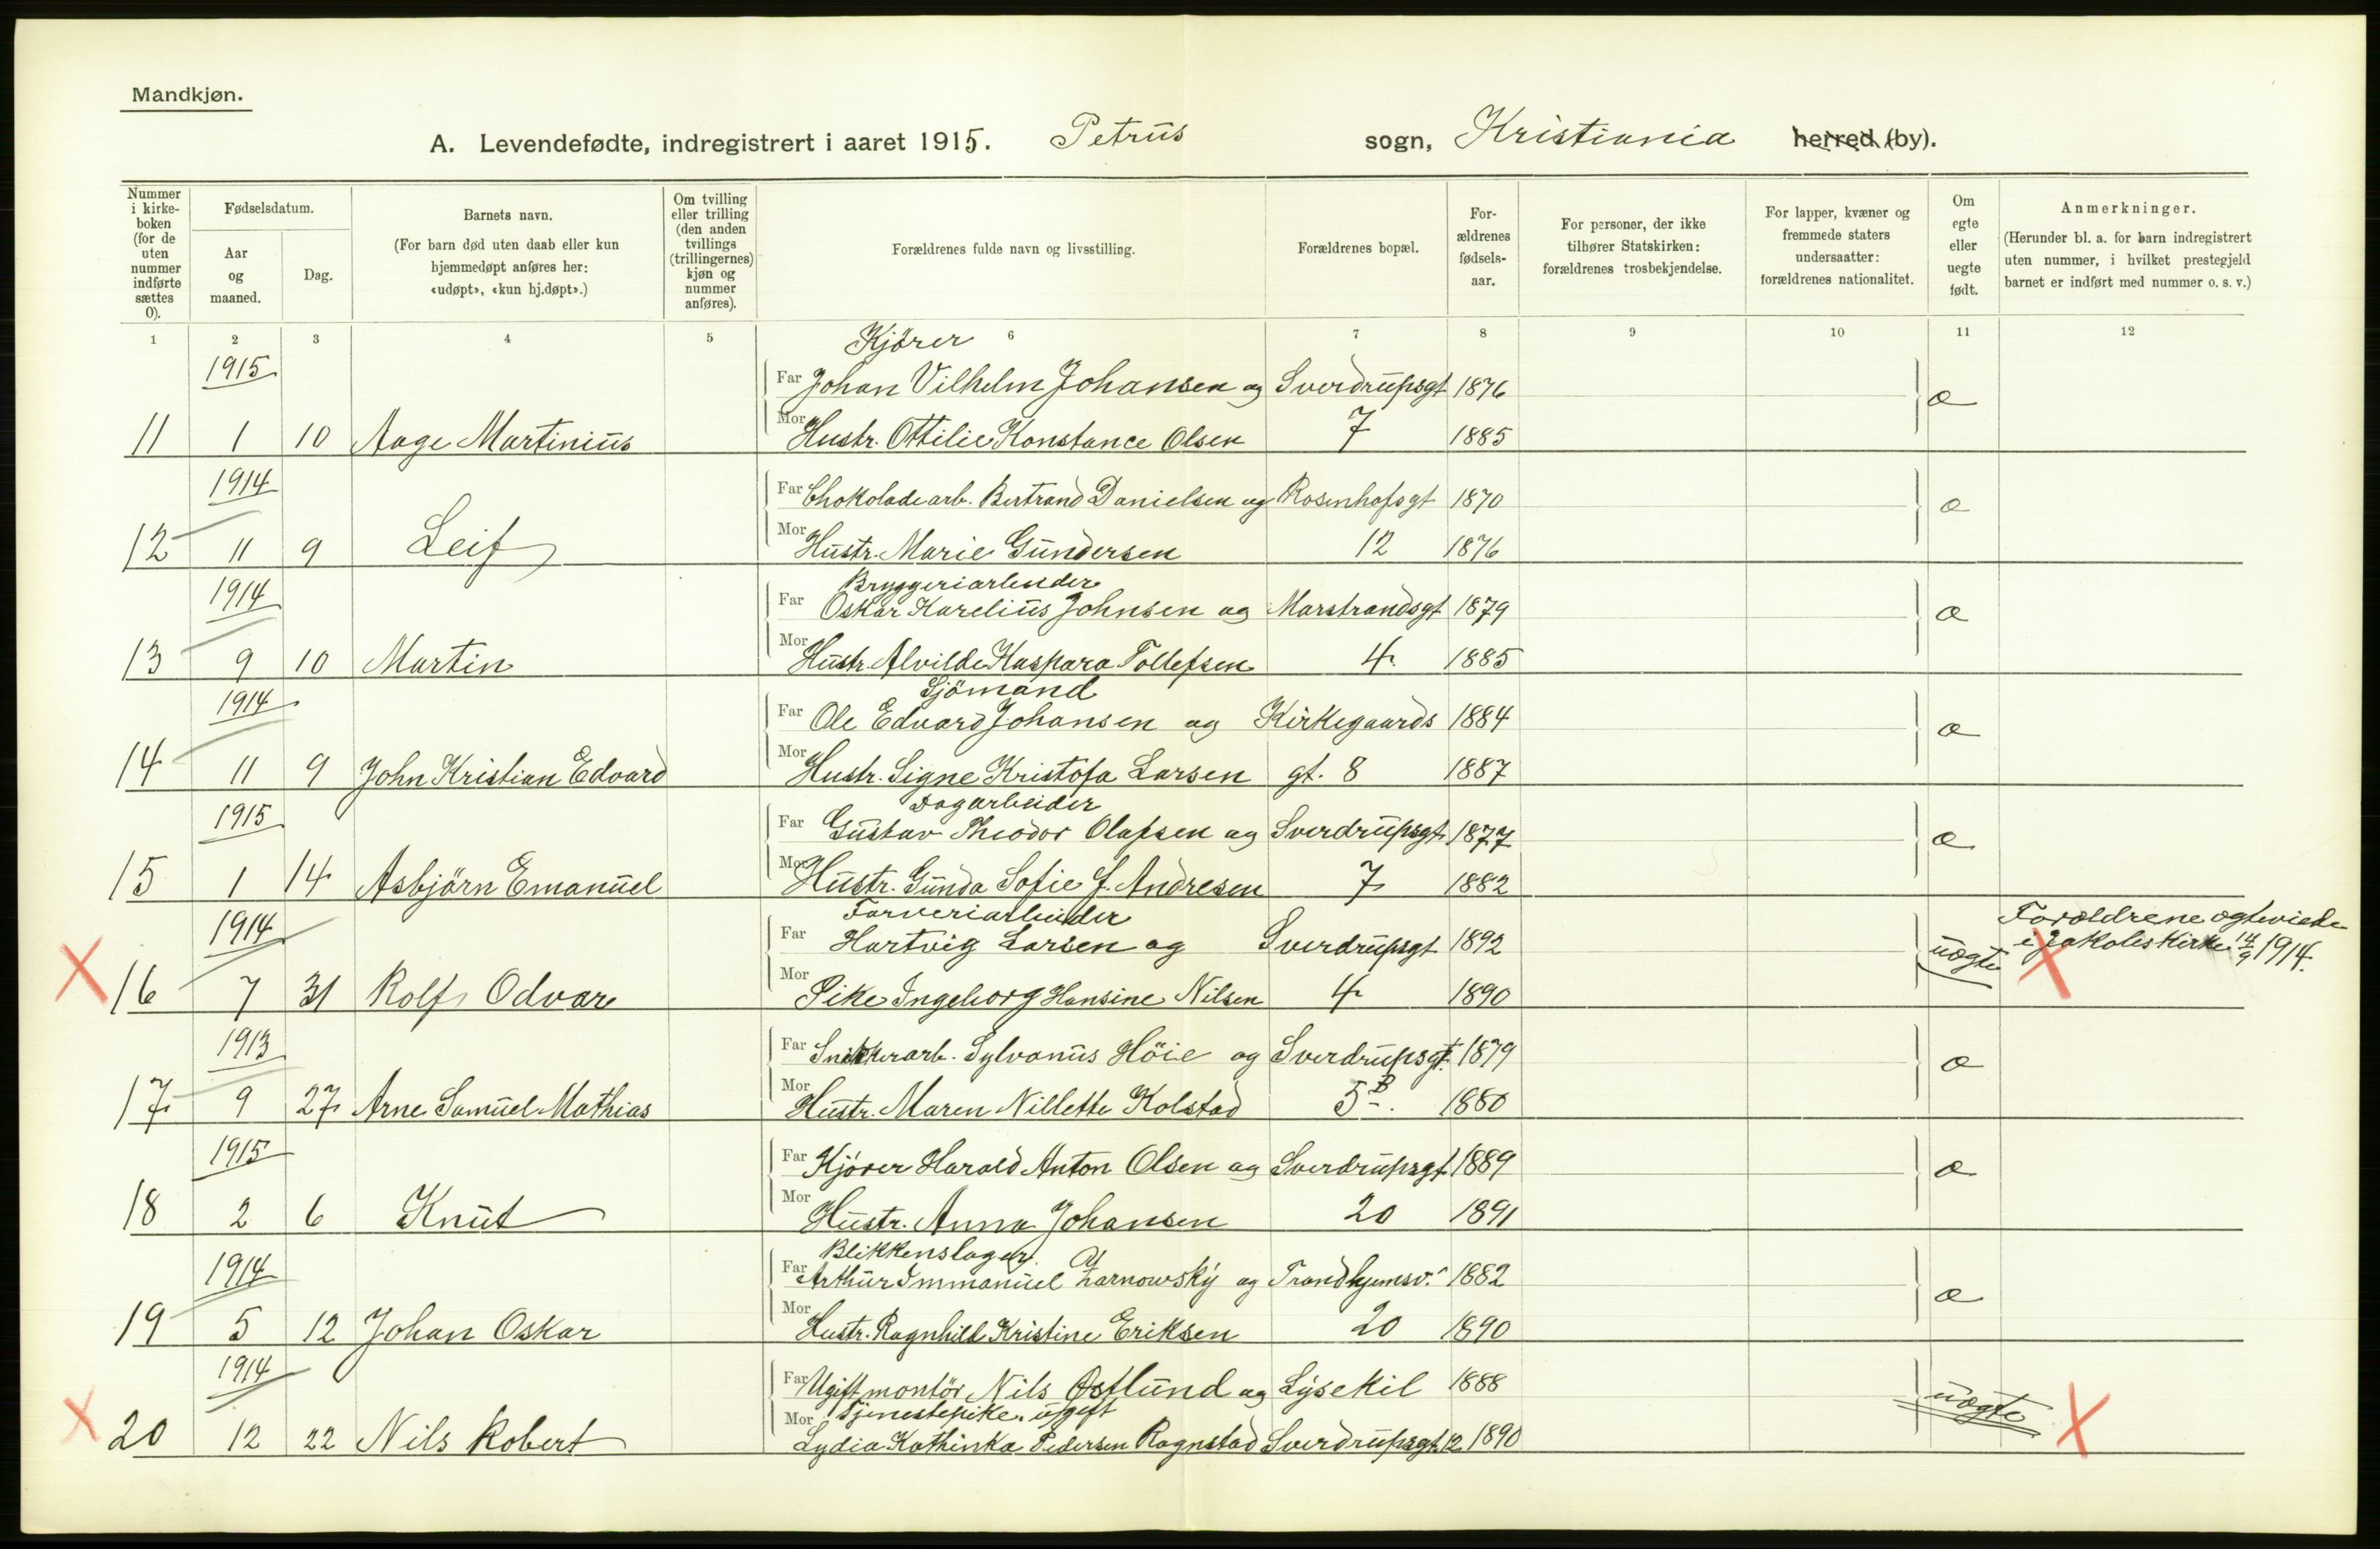 Mandkjøn.
A. Levendefødte, indregistrert i aaret 1915. Petrus sogn, Kristiania herred (by).
Nummer i kirke-boken (for de uten nummer indførte sættes 0).
Fødselsdatum.
Aar og maaned.
Dag.
Barnets navn.
(For barn død uten daab eller kun hjemmedøpt anføres her: «udøpt», «kun hj.døpt».)
Om tvilling eller trilling (den anden tvillings (trillingernes) kjøn og nummer anføres).
Forældrenes fulde navn og livsstilling.
Forældrenes bopæl.
For-ældrenes fødsels-aar.
For personer, der ikke tilhører Statskirken: forældrenes trosbekjendelse.
For lapper, kvæner og fremmede staters undersaatter: forældrenes nationalitet.
Om egte eller uegte født.
Anmerkninger.
(Herunder bl. a. for barn indregistrert uten nummer, i hvilket prestegjeld barnet er indført med nummer o. s. v.)
1 2 3 4 5 6 7 8 9 10 11 12
Kjörer
1915 Far Johan Vilhelm Johansen og Sverdrupsgt 1876 æ
11 1 10 Aage Martinius Mor Hustr. Ottilie Konstance Olsen 7 1885
1914 Far Chokoladearb. Bertrand Danielsen og Rosenhofsgt 1870 æ
12 11 9 Leif Mor Hustr. Marie Gundersen 12 1876
Bryggeriarbeider
1914 Far Oskar Karelius Johnsen og Marstrandsgt 1879 æ
13 9 10 Martin Mor Hustr. Alvilde Kaspara Tollefsen 4 1885
Sjömand
1914 Far Ole Edvard Johansen og Kirkegaards 1884 æ
14 11 9 John Kristian Edvard Mor Hustr. Signe Kristofa Larsen gt. 8 1887
Dagarbeider
1915 Far Gustav Theodor Olafsen og Sverdrupsgt 1877 æ
15 1 14 Asbjörn Emanuel Mor Hustr. Gunda Sofie f. Andresen 7 1882
Farveriarbeider Forældrene ægteviede
1914 Far Hartvig Larsen og Sverdrupsgt 1892 uægte i Jakobs kirke 14/9 1914.
16 7 31 Rolf Odvar Mor Pike Ingeborg Hansine Nilsen 4 1890
1913 Far Snekkerarb. Sylvanus Höie og Sverdrupsgt. 1879 æ
17 9 27 Arne Samuel Mathias Mor Hustr. Maren Nillette Kolstad 5B. 1880
1915 Far Kjörer Harald Anton Olsen og Sverdrupsgt 1889 æ
18 2 6 Knut Mor Hustr. Anna Johansen 20 1891
Blikkenslager
1914 Far Arthur Immanuel Czarnowsky og Trondhjemsv. 1882 æ
19 5 12 Johan Oskar Mor Hustr. Ragnhild Kristine Eriksen 20 1890
1914 Far Ugift montör Nils Østlund og Lysekil 1888 uægte
Tjenestepike, ugift
20 12 22 Nils Robert Mor Lydia Kathinka Pedersen Rognstad Sverdrupsgt 12 1890